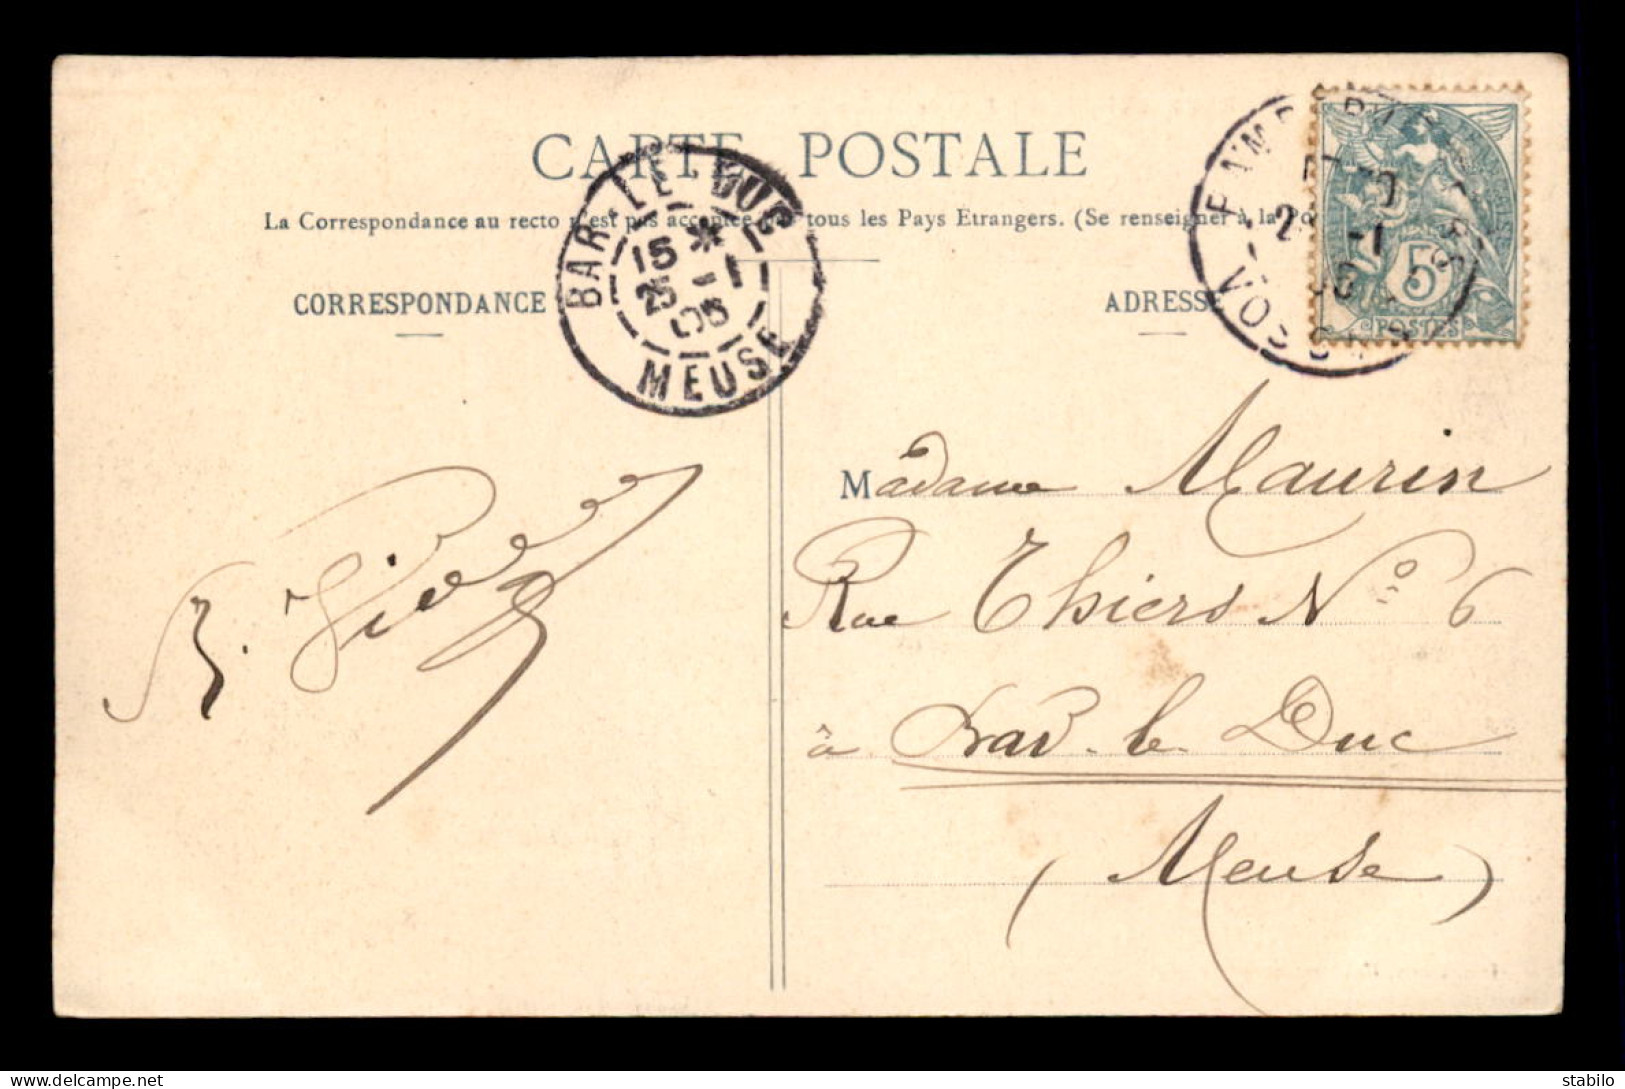 CARTE POSTALE
La Correspondance au recto n'est pas acceptée par tous les Pays Etrangers. (Se renseigner à la Po
CORRESPONDANCE
ADRESSE
BAR-LE-DUC
15 *
25 -1
05
MEUSE
RAMBERVILLERS
-1
VOSGES
5
POSTES
Madame Maurin
Rue Thiers No 6
à Bar-le-Duc
(Meuse)
delcampe.net
stabilo